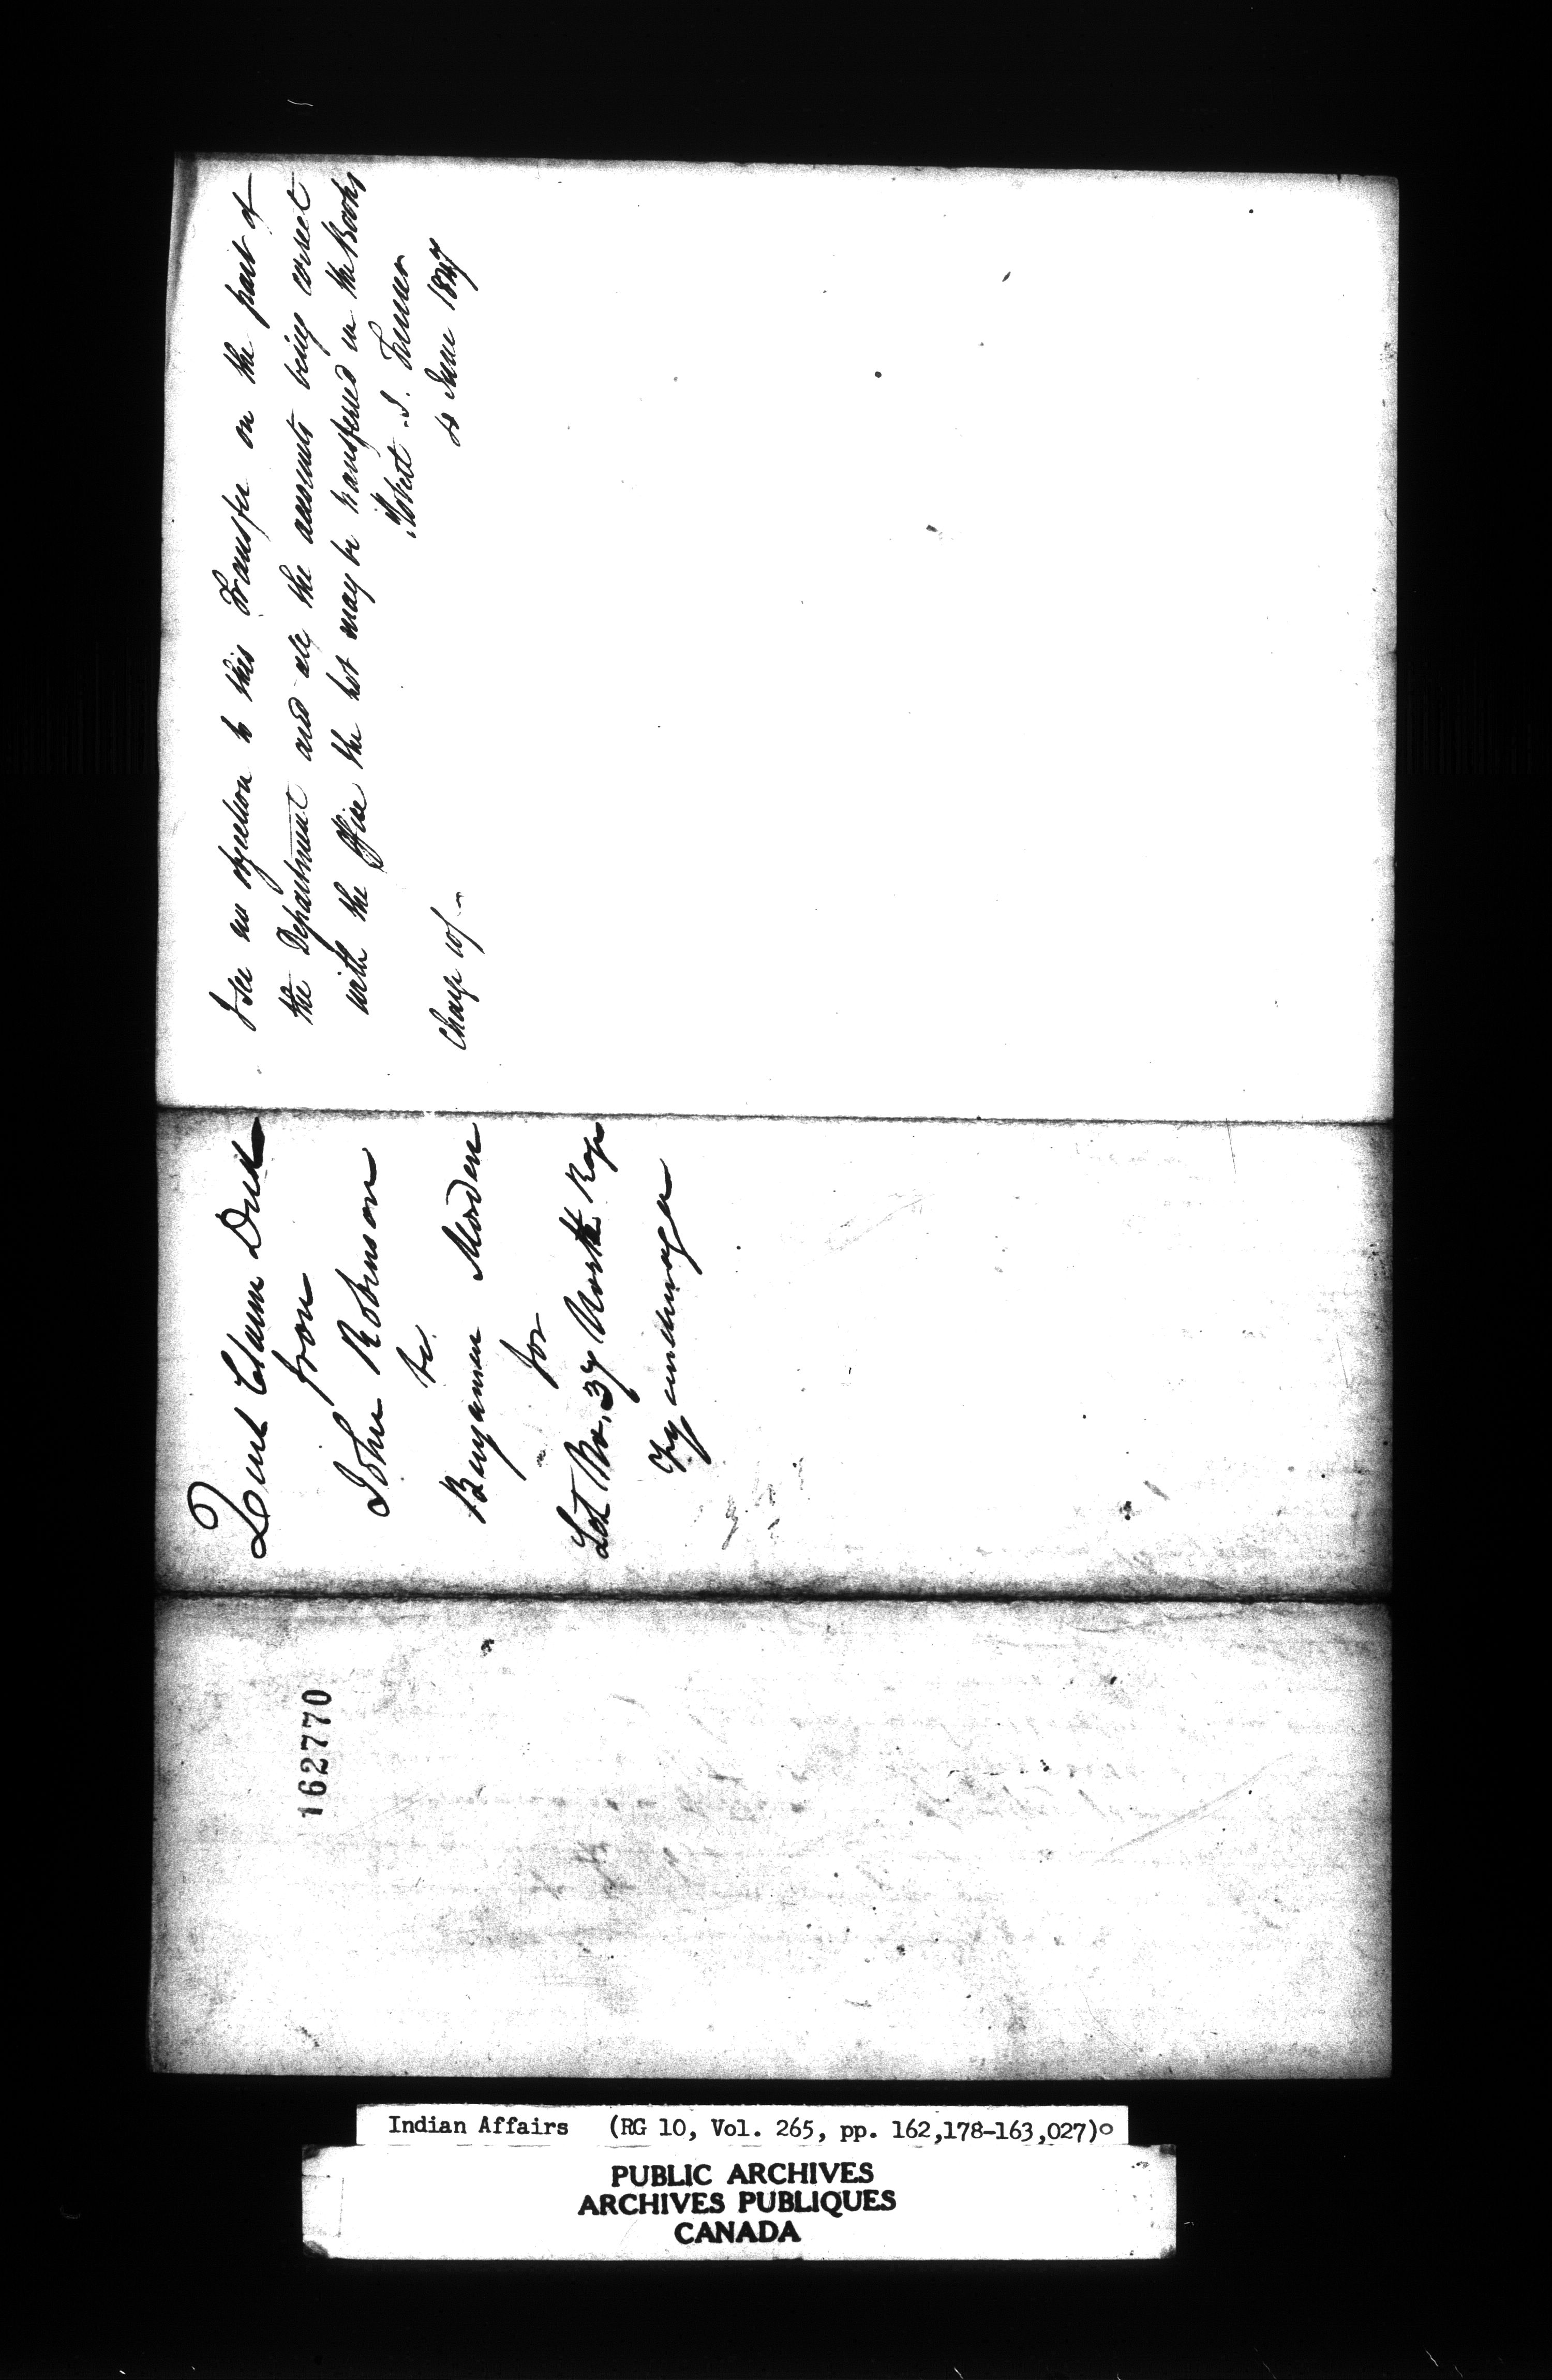 I see no objection to this Transfer on the part of
the Department and all the accounts being correct
with the Office the Lot may be transferred in the Books
Robert
4 June 1847
Charge 10/-
Quit Claim Deed
from
John Robinson
to
Benjamin Morden
for
Lot No. 37 North
Tyendinaga
162770
Indian Affairs (RG 10, Vol. 265, pp. 162,178-163,027)
PUBLIC ARCHIVES
ARCHIVES PUBLIQUES
CANADA